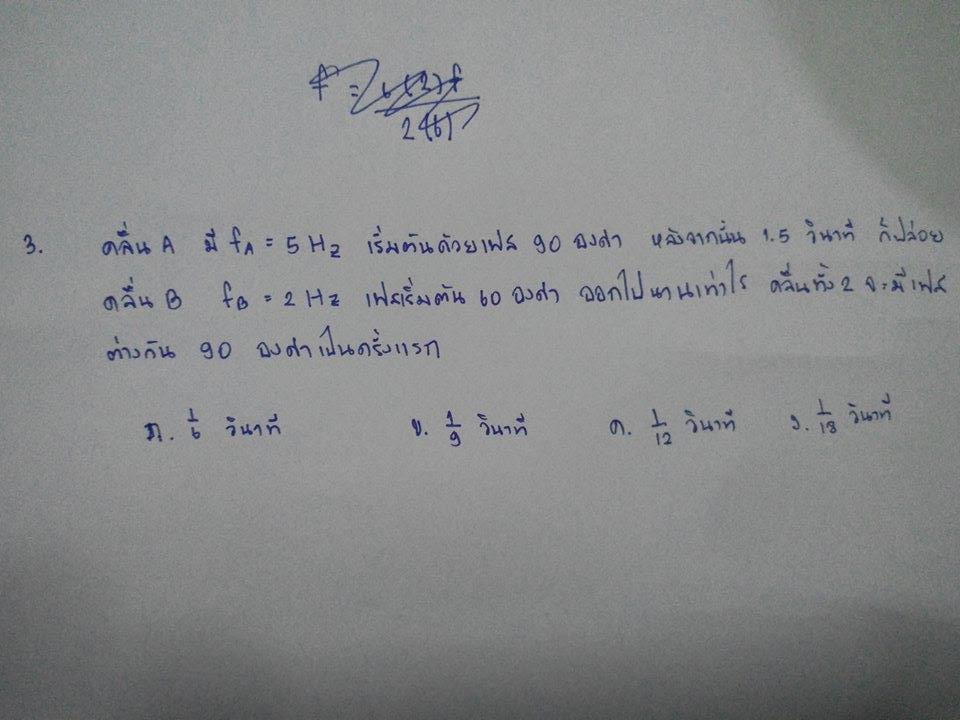 3. คลื่น A มี fA = 5 Hz เริ่มต้นด้วยเฟส 90 องศา หลังจากนั้น 1.5 วินาที ก็ปล่อย
คลื่น B fB = 2 Hz เฟสเริ่มต้น 60 องศา ออกไปนานเท่าไร คลื่นทั้ง 2 จะมีเฟส
ต่างกัน 90 องศาเป็นครั้งแรก
ก. 1/6 วินาที ข. 1/9 วินาที ค. 1/12 วินาที ง. 1/18 วินาที